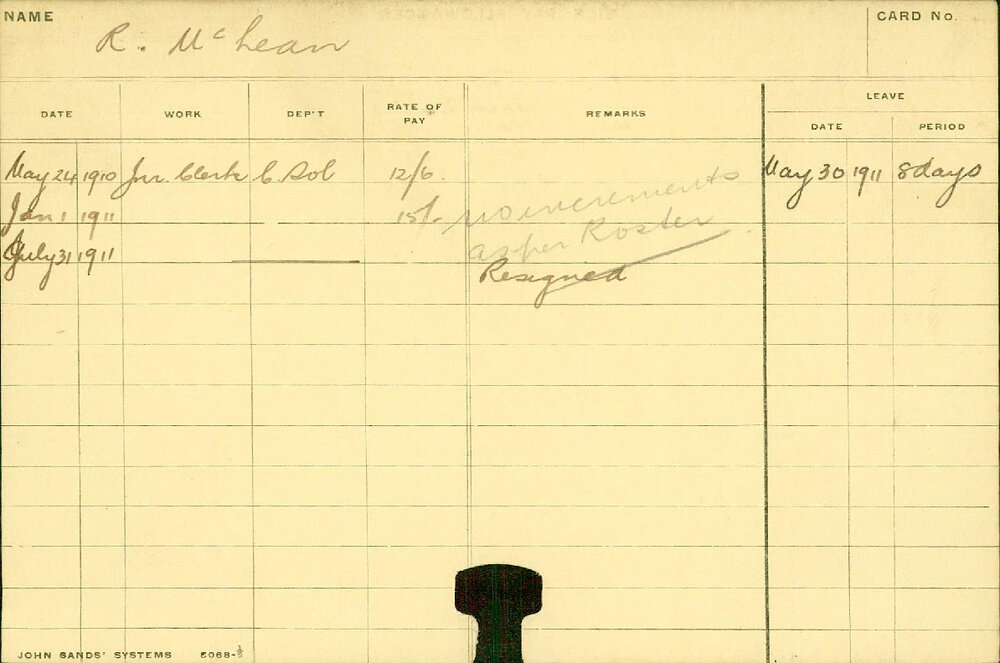 NAME
CARD No.
R. McLean
DATE WORK DEP'T RATE OF PAY REMARKS LEAVE
DATE PERIOD
May 24 1910 Jnr. Clerk C. Sol 12/6. May 30 1911 8 days
Jan 1 1911 15/- No increments
as per Roster
July 31 1911 Resigned
JOHN SANDS' SYSTEMS 5068-